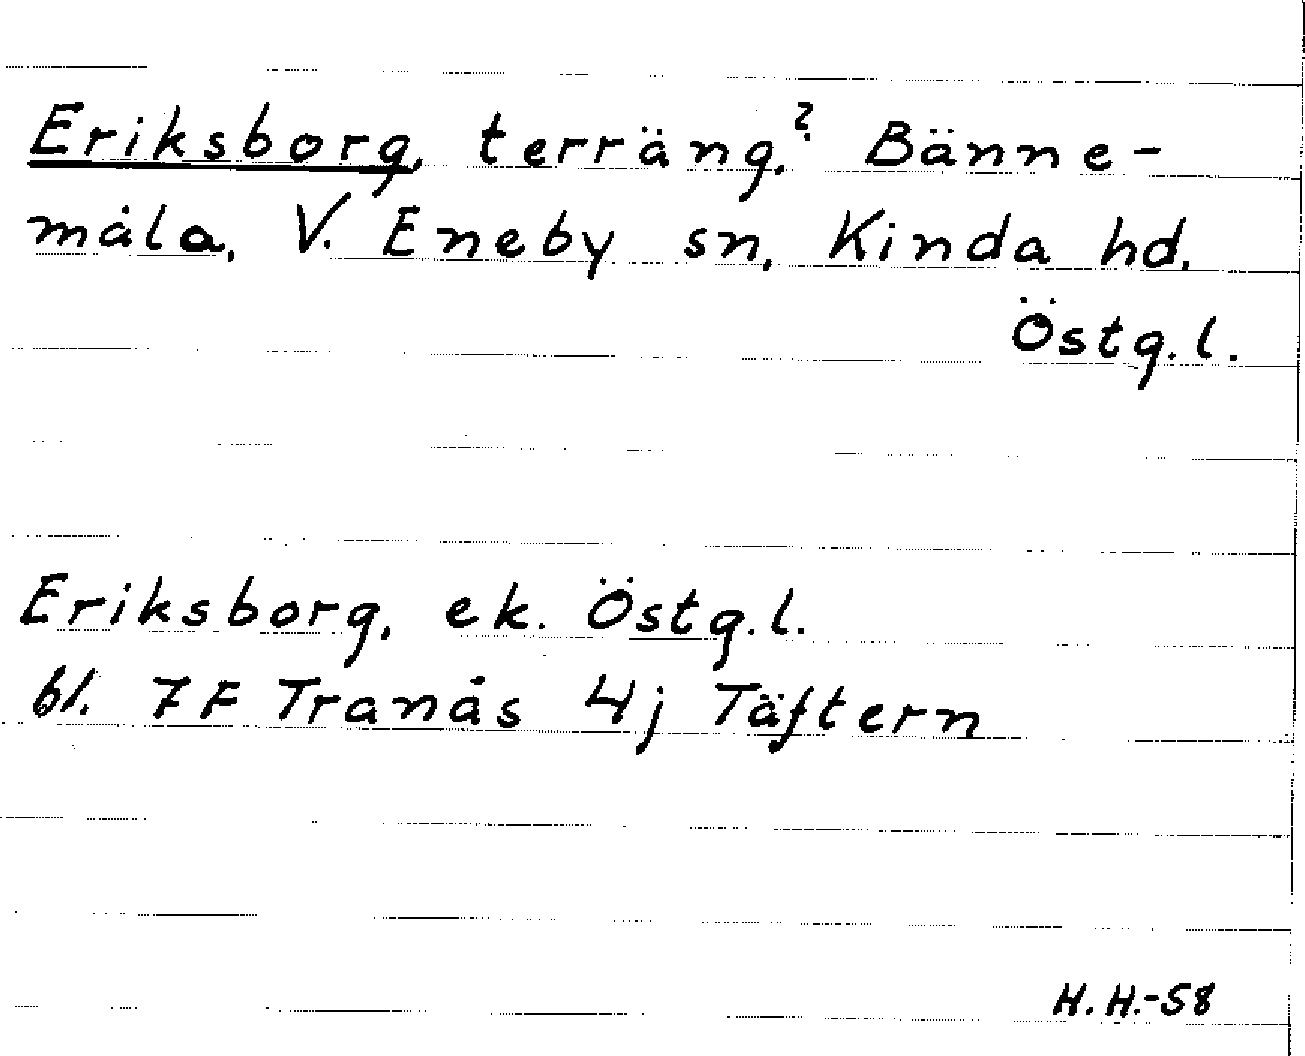 Eriksborg, terräng,? Bänne-
måla, V. Eneby sn, Kinda hd.
Östg.l.
Eriksborg, ek. Östg.l.
bl. 7F Tranås 4j Täftern
H.H.-58